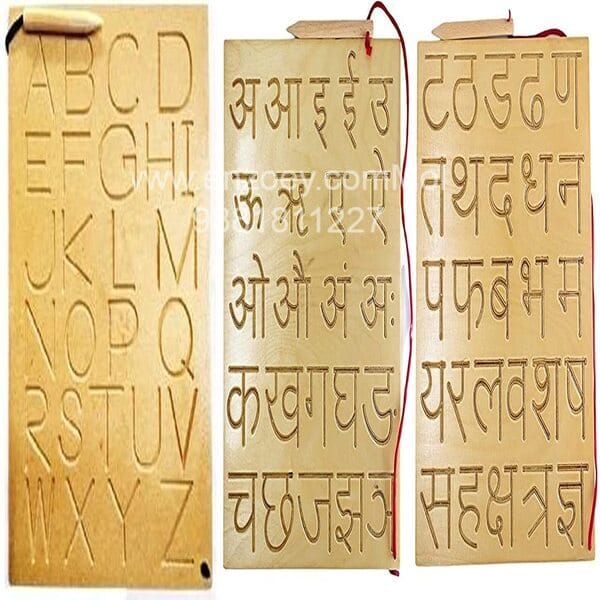 A B C D
E F G H I
J K L M
N O P Q
R S T U V
W X Y Z
अ आ इ ई उ
ऊ ऋ ए ऐ
ओ औ अं अः
क ख ग घ ङ
च छ ज झ ञ
ट ठ ड ढ ण
त थ द ध न
प फ ब भ म
य र ल व श ष
स ह क्ष त्र ज्ञ
www.enzoey.com